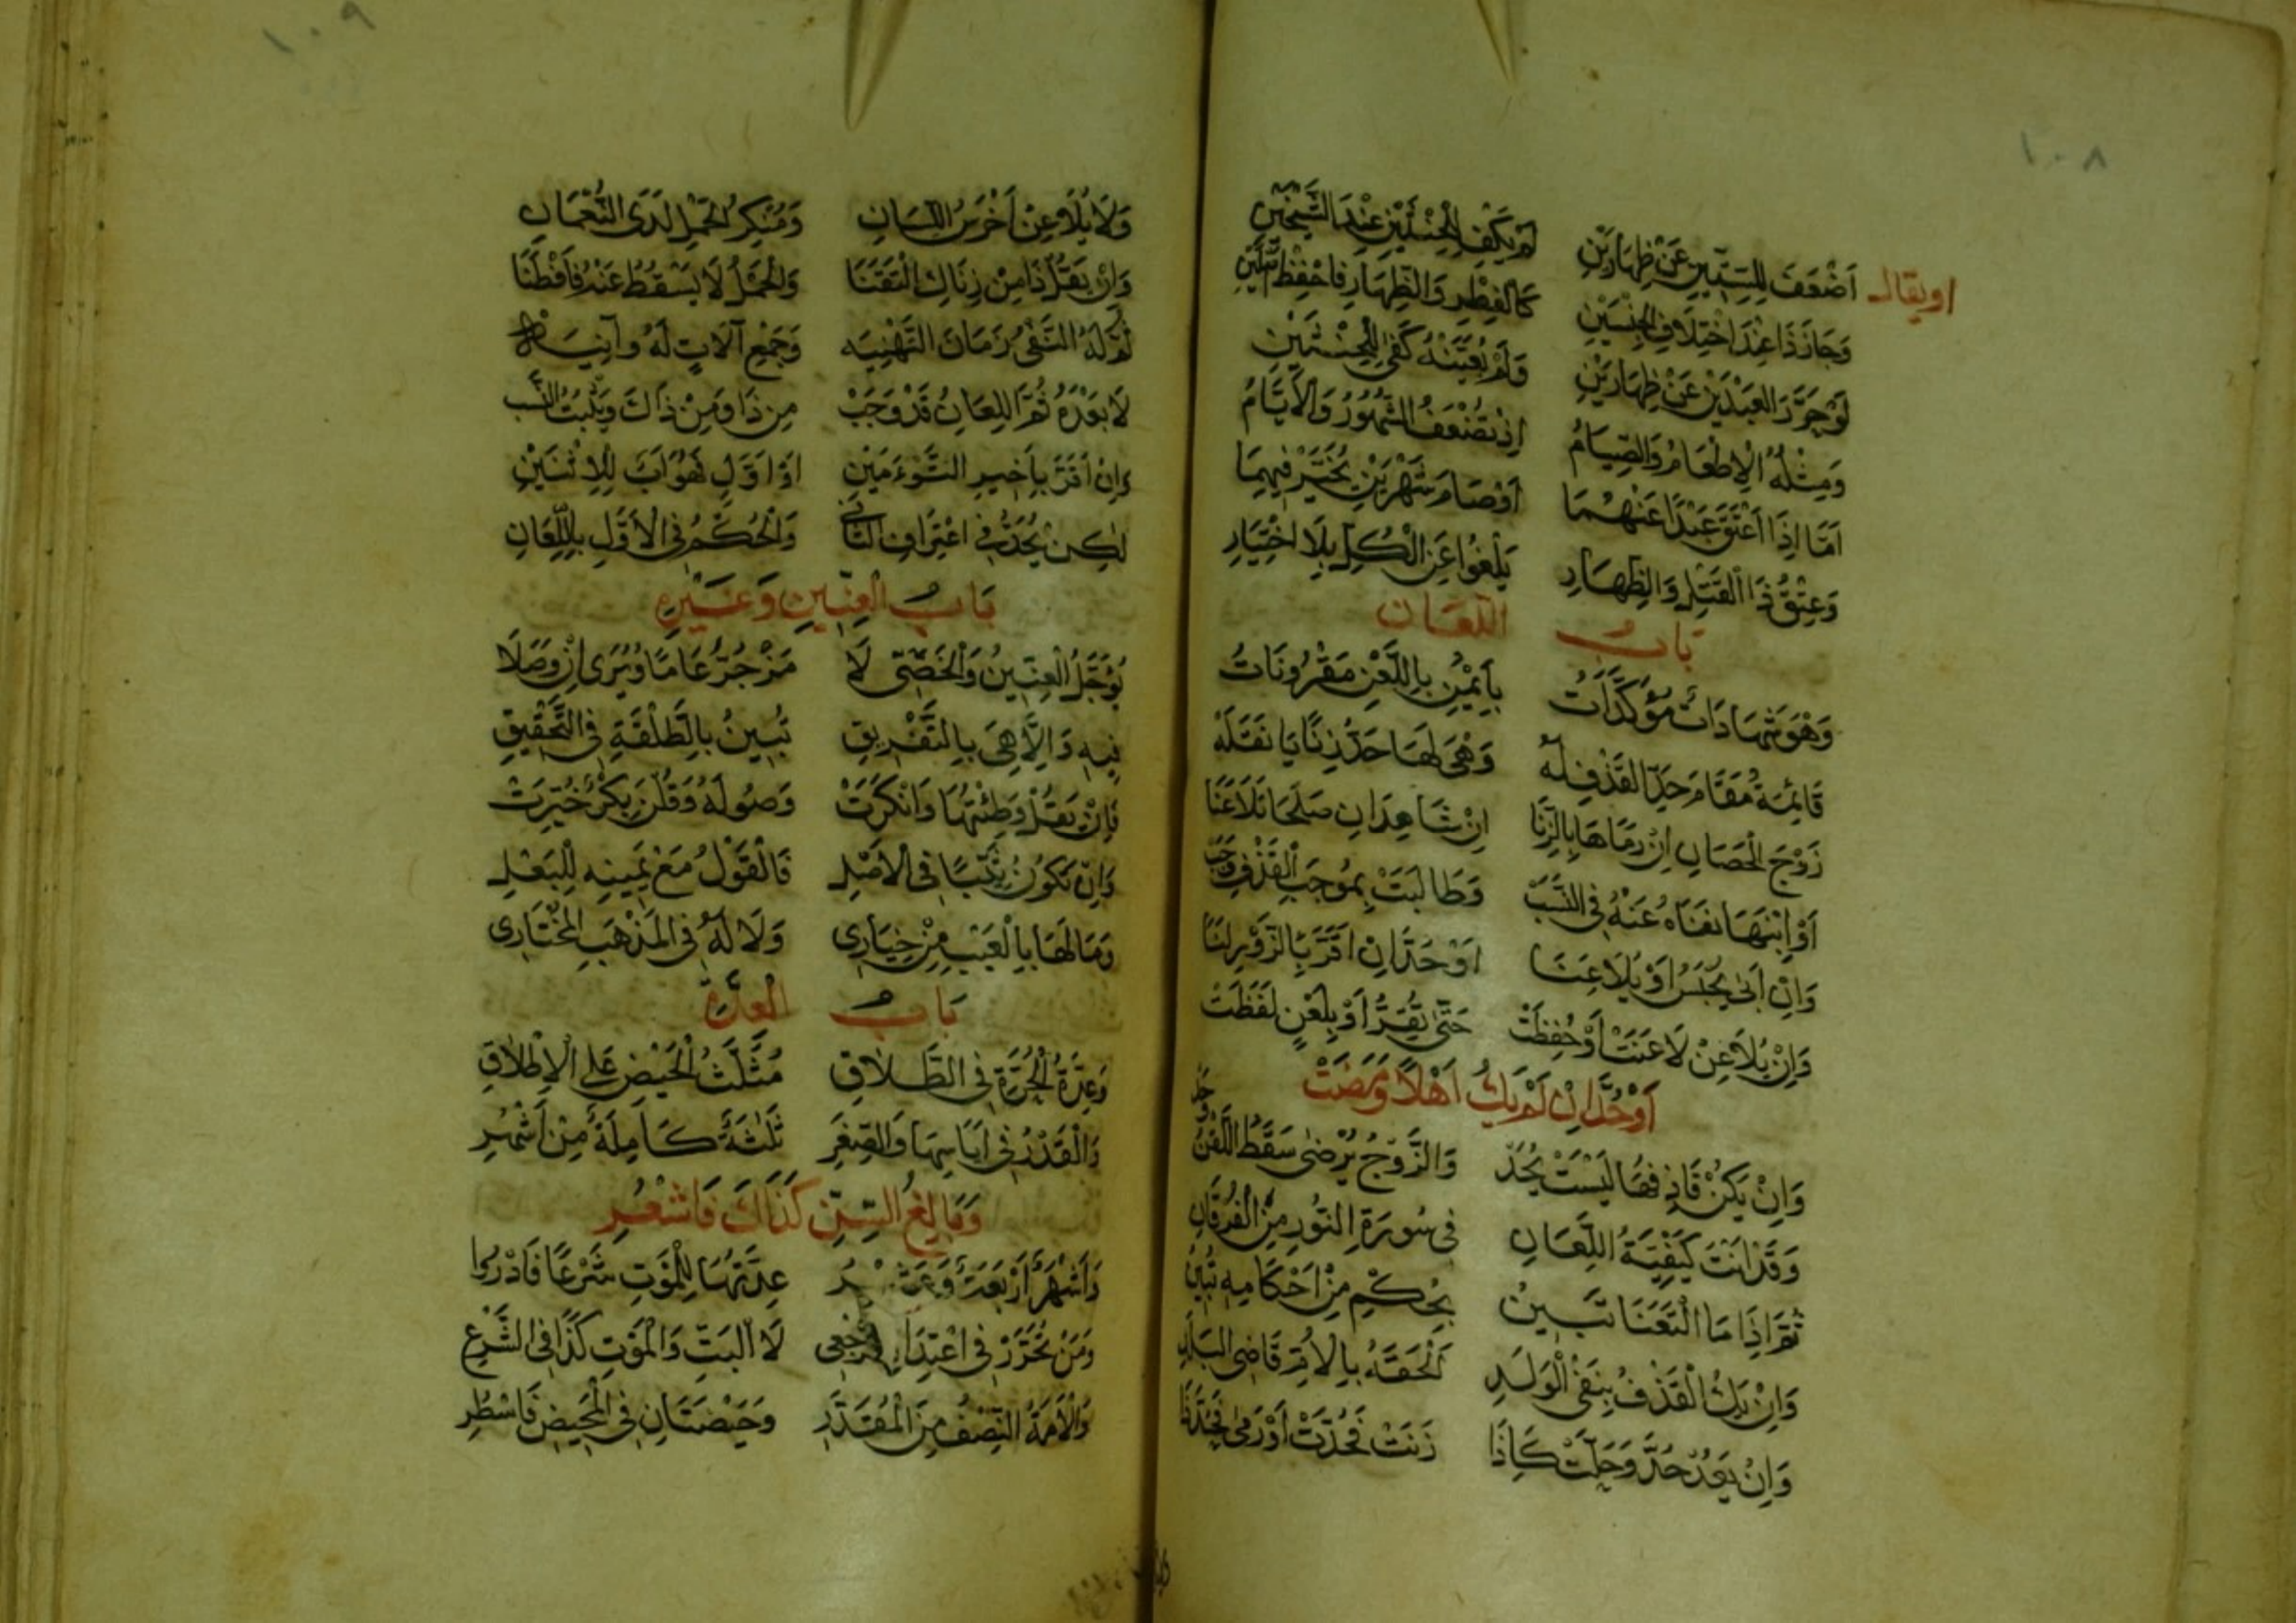 ١٠٨
او يقال
اَضْعَفَ لِلسِّتِّينَ عَنْ ظِهَارَيْنِ لَمْ يَكْفِ الْجِنْسَيْنِ عِنْدَ الشَّيْخَيْنِ
وَجَازَ ذَا عِنْدَ اخْتِلَافِ الْجِنْسَيْنِ كَالْفِطْرِ وَالظِّهَارِ فَاحْفَظْ
لَوْ حَرَّرَ الْعَبْدَيْنِ عَنْ ظِهَارَيْنِ وَلَمْ يُعَيِّنْهُ كَفَى
وَمِثْلُهُ الْاِطْعَامُ وَالصِّيَامُ اِذْ تُضْعَفُ الشُّهُورُ وَالْاَيَّامُ
اَمَّا اِذَا اَعْتَقَ عَبْدًا عَنْهُمَا اَوْ صَامَ شَهْرَيْنِ يُخَيَّرْ فِيهِمَا
وَعِتْقُ ذَا الْقَتْلِ وَالظِّهَارِ يَلْغُوا عَنِ الْكُلِّ بِلَا اخْتِيَارِ
بَابُ اللِّعَانِ
وَهْوَ شَهَادَاتٌ مُؤَكَّدَاتٌ بِاَيْمُنٍ بِاللَّعْنِ مَقْرُونَاتُ
قَائِمَةٌ مَقَامَ حَدِّ الْقَذْفِ لَهُ وَهْيَ لَهَا حَدُّ زِنًا يَا نَقَلَهْ
زَوْجَ الْحَصَانِ اِنْ رَمَاهَا بِالزِّنَا اِنْ شَاهِدَانِ صَلَحَا تَلَاعَنَا
اَوْ اِبْنَهَا نَفَاهُ عَنْهُ فِي النَّسَبْ وَطَالَبَتْ بِمُوجَبِ الْقَذْفِ وَجَبْ
وَاِنْ اَبَى يُحْبَسُ اَوْ يُلَاعِنَا اَوْ حُدَّ اِنْ اَقَرَّ بِالزُّوْرِ لَنَا
وَاِنْ يُلَاعِنْ لَاعَنَتْ اَوْ حُفِظَتْ حَتَّى تُقِرَّ اَوْ بِلَعْنٍ لَفَظَتْ
اَوْ حُدَّ اِنْ لَمْ يَكُ اَهْلًا وَمَضَتْ
وَاِنْ يَكُنْ قَاذِفُهَا لَيْسَتْ يُحَدّ وَالزَّوْجُ يُرْضَى سَقَطَ اللَّعْنُ وَحَد
وَقَدْ اَتَتْ كَيْفِيَّةُ اللِّعَانِ فِي سُورَةِ النُّورِ مِنَ الْفُرْقَانِ
ثُمَّ اِذَا مَا الْتَعَنَا تَبِينُ بِحُكْمٍ مِنْ اَحْكَامِهِ تُبِينُ
وَاِنْ يَكُ الْقَذْفُ بِنَفْيِ الْوَلَدِ اَلْحَقَهُ بِالْاُمِّ قَاضِي الْبَلَدِ
وَاِنْ يَعُدْ حُدَّ وَحَلَّتْ كَاِذَا زَنَتْ فَحُدَّتْ اَوْ رَمَى
١٠٩
وَلَا يُلَاعِنْ اَخْرَسُ اللِّسَانِ وَمُنْكِرُ الْحَمْلِ لَدَى النُّعْمَانِ
وَاِنْ يَقُلْ ذَا مِنْ زِنَاكِ الْتَعَنَا وَالْحَمْلُ لَا يَسْقُطُ عَنْهُ فَافْطَنَا
ثُمَّ لَهُ النَّفْيُ زَمَانَ التَّهْنِيَه وَجَمْعِ آلَاتٍ لَهُ وَآنِيَه
لَا بَعْدَهُ ثُمَّ اللِّعَانُ قَدْ وَجَبْ مِنْ ذَا وَمِنْ ذَاكَ وَيَثْبُتُ النَّسَب
وَاِنْ اَقَرَّ بِاَخِيرِ التَّوْءَمَيْنِ اَوْ اَوَّلٍ فَهُوَ اَبٌ لِلْاِثْنَيْنِ
لٰكِنْ يُحَدُّ فِي اعْتِرَافِ الثَّانِي وَالْحُكْمُ فِي الْاَوَّلِ بِاللِّعَانِ
بَابُ الْعِنِّينِ وَغَيْرِهِ
يُؤَجَّلُ الْعِنِّينُ وَالْخَصِيُّ لَا مَنْ جُبَّ عَامًا وَيُرَى اِنْ وَصَلَا
فِيهِ وَاِلَّا هِيَ بِالتَّفْرِيقِ تُبِينُ بِالطَّلْقَةِ فِي التَّحْقِيقِ
فَاِنْ يَقُلْ وَطِئْتُهَا وَاَنْكَرَتْ وُصُولَهُ وَقُلْنَ بِكْرٌ خُيِّرَتْ
وَاِنْ تَكُونُ ثَيِّبًا فِي الْاَصْلِ فَالْقَوْلُ مَعْ يَمِينِهِ لِلْبَعْلِ
وَمَا لَهَا بِالْعَيْبِ مِنْ خِيَارِي وَلَا لَهُ فِي الْمَذْهَبِ الْمُخْتَارِي
بَابُ الْعِدَّةِ
وَعِدَّةُ الْحُرَّةِ فِي الطَّلَاقِ مُثَلَّثُ الْحَيْضِ عَلَى الْاِطْلَاقِ
وَالْقَدْرُ فِي اِيَاسِهَا وَالصِّغَرِ ثَلٰثَةٌ كَامِلَةٌ مِنْ اَشْهُرِ
وَبَالِغُ السِّنِّ كَذَاكَ فَاشْعُرِ
وَاَشْهُرٌ اَرْبَعَةٌ وَعَشْرُ عِدَّتُهَا لِلْمَوْتِ شَرْعًا فَادْرُوا
وَمَنْ تُحَرَّرْ فِي اعْتِدَادِ لَا الْبَتِّ وَالْمَوْتِ كَذَا فِي الشَّرْعِ
وَالْاَمَةُ النِّصْفُ مِنَ الْمُقَدَّرِ وَحَيْضَتَانِ فِي الْمَحِيضِ فَاسْطُرِ